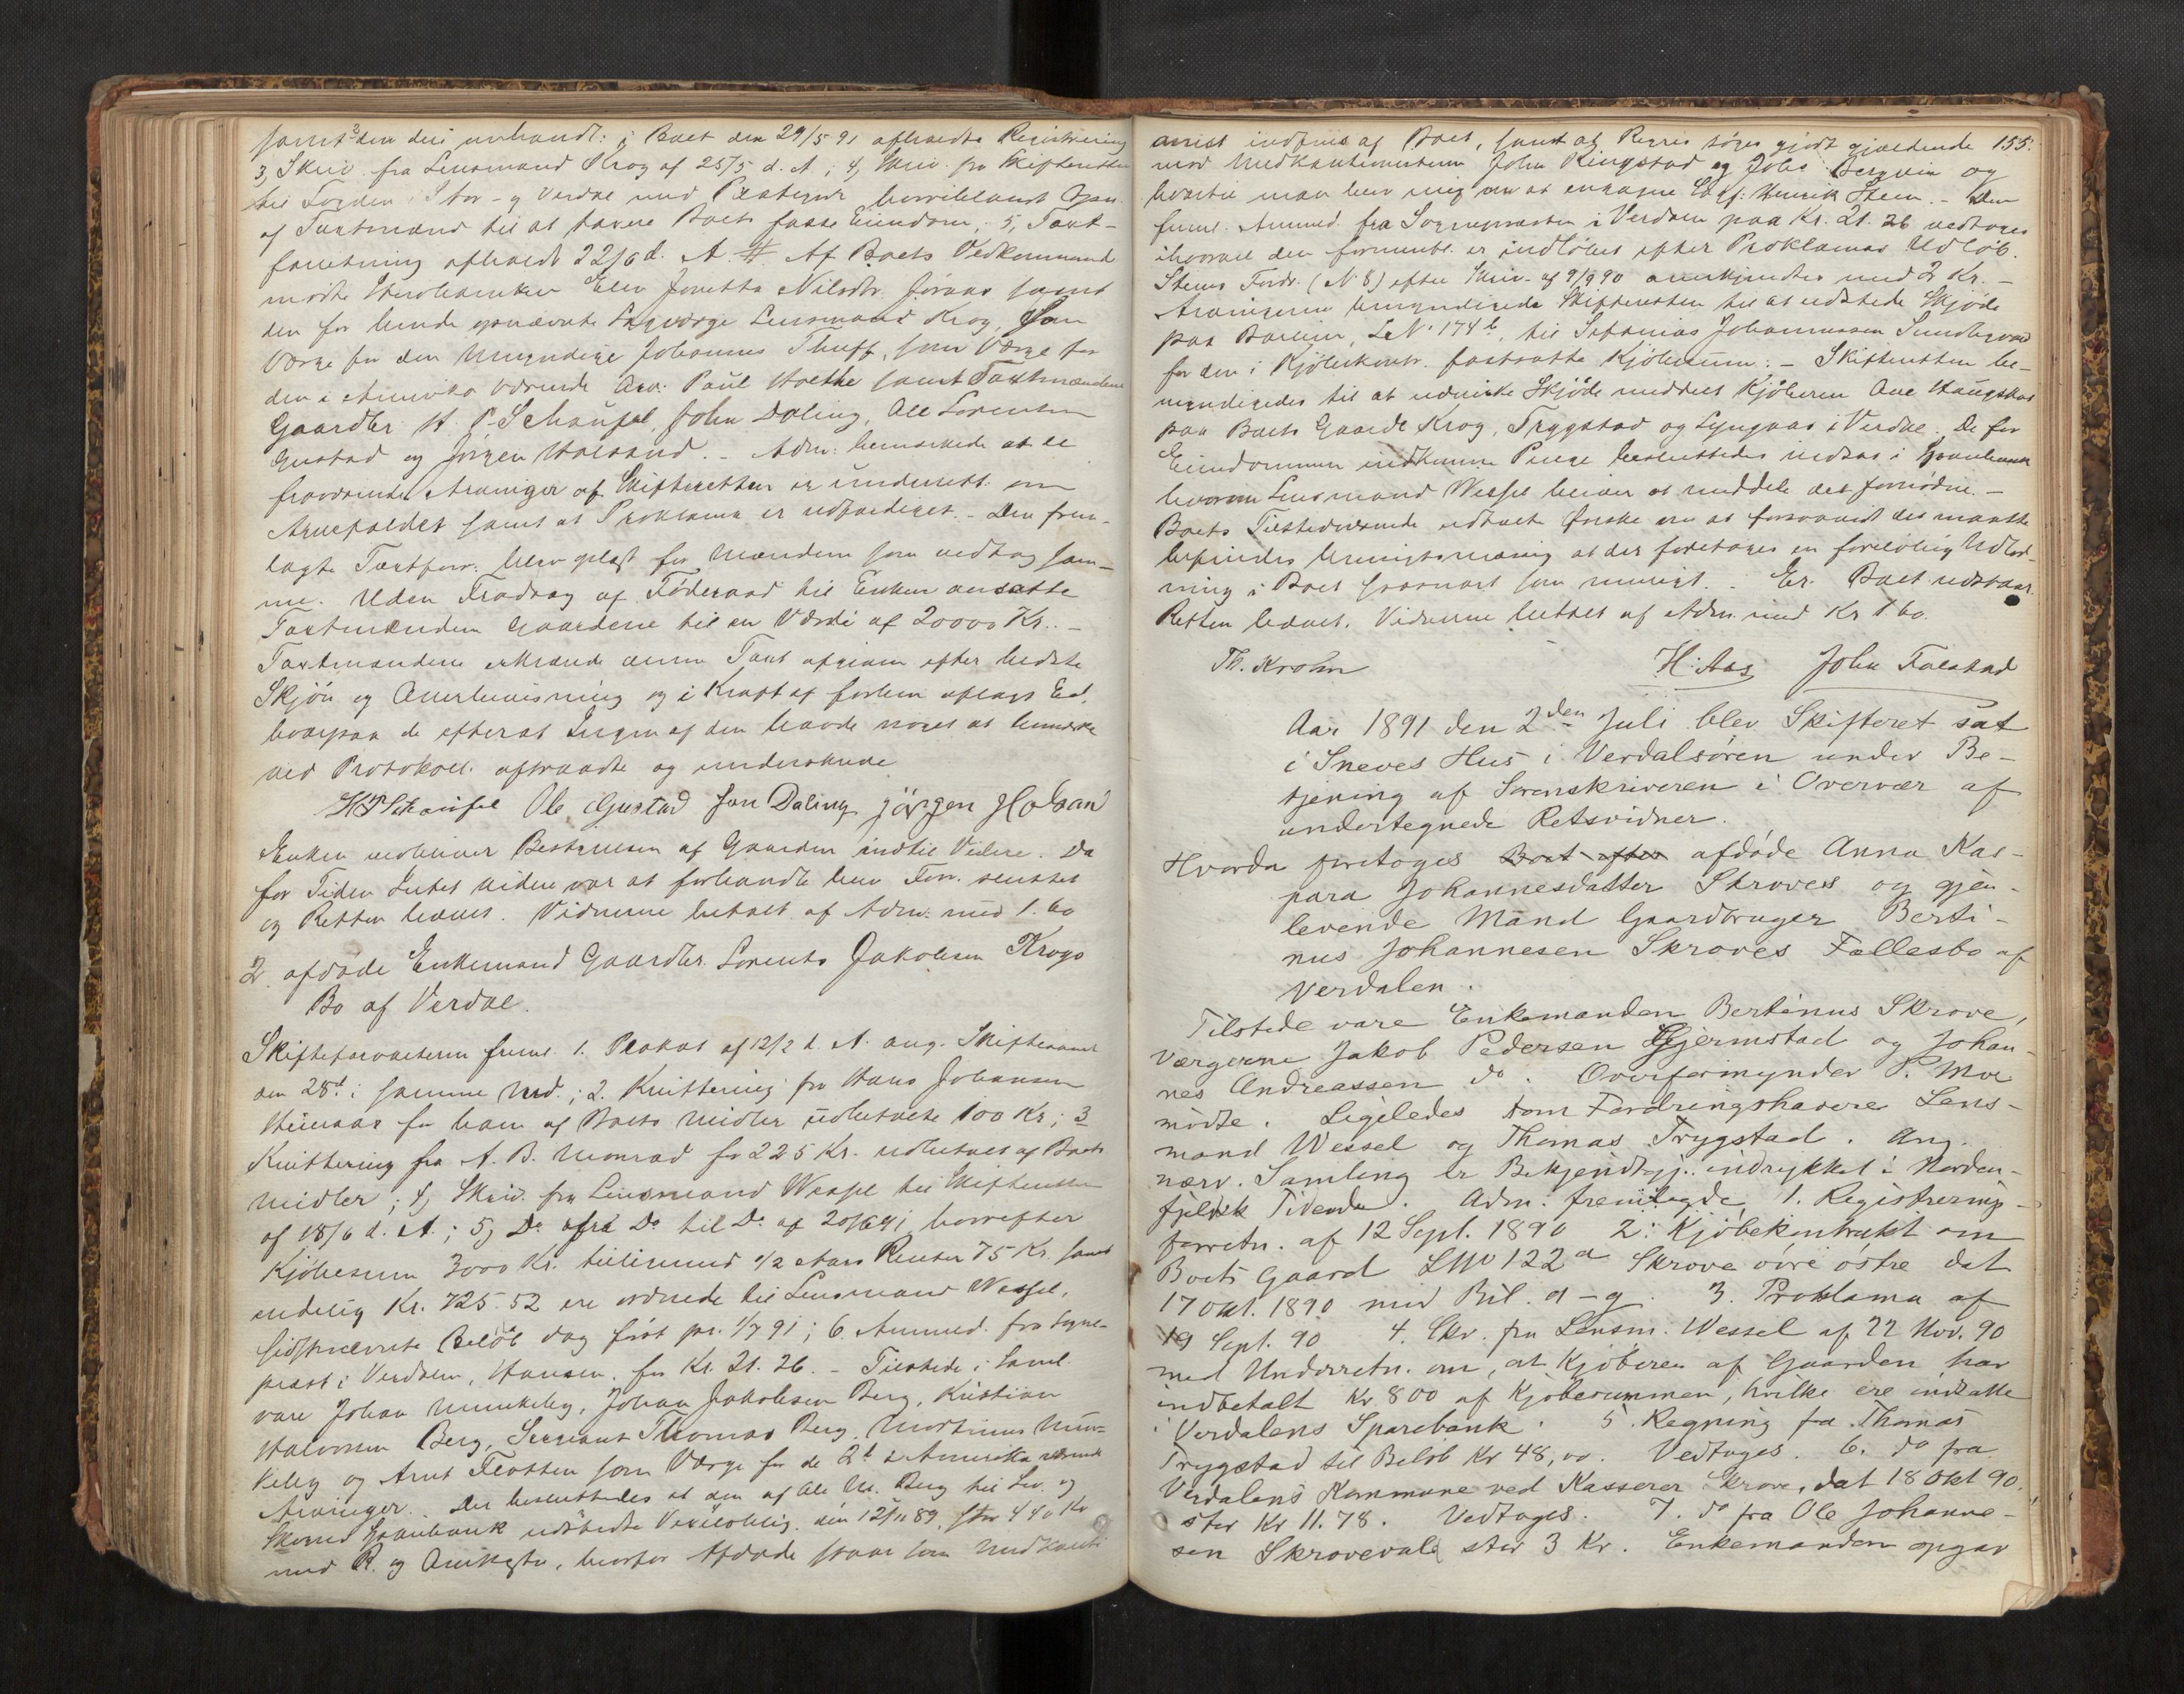 samt den deri i Boet den 29/5 91 afholdte Registrering
3, Skriv. fra Lensmand Krog af 25/5 d. A.; 4, Skriv. fra Skifteretten
til Lagden i Stor- og Verdal med Paategn. Opn.
af Taxtmænd til at taxere Boets faste Eiendom; 5, Taxt-
forretning afholdt 22/6 d. A. # Af Boets Vedkommende
mødte Elen Jonetta Nilsdtr. samt
den for hende opnævnte Lagværge Lensmand Krog, som
Værge for den Umyndige Johannes som Værge for
den i Amerika værende Arv. Paul samt Taxtmændene
Gaardbr. H. P. Schaufel, John Daling, Ole Lorentsen
Gustad og Jørgen Holsand. - Adm. bemærkede at de
fraværende Arvinger af Skifteretten er underrett. om
Arvefaldet samt at Proklama er udfærdiget. - Den frem-
lagte Taxtforr. blev oplæst for Mændene som vedtog sam-
me. Uden Fradrag af Føderaad til Enken ansatte
Taxtmændene Gaardene til en Værdi af 20000 Kr. -
Taxtmændene erklærede denne Taxt afgiven efter bedste
Skjøn og Overbevisning og i Kraft af forhen aflagt Ed,
hvorpaa de efterat Ingen af dem havde noget at bemærke
ved Protokoll. aftraadte og underskrev
HPSchaufel Ole Gustad Jon Daling Jørgen Holsand
Enken vedbliver Bestyrelsen af Gaarden indtil Videre. Da
for Tiden Intet videre var at forhandle blev Forr. sluttet
og Retten hævet. Vidnerne betalt af Adm. med 1.60
2. afdøde Enkemand Gaardbr. Lorents Jakobsen Krogs
Bo af Verdal.
Skifteforvalteren freml. 1. Plakat af 12/2 d. A. ang. Skiftesaml.
den 28d i samme Md.; 2. Kvittering fra Hans Johansen
for ham af Boets Midler udbetalte 100 Kr; 3
Kvittering fra A. B. Monrad for 225 Kr. udbetalt af Boets
Midler; 4, Skriv. fra Lensmand Wessel til Skifteretten
af 18/6 d. A.; 5, Do. fra Do til Do. af 20/6 91, hvorefter
Kjøbesum 3000 Kr. tilligemed 1/2 Aars Renter 75 Kr. samt
endelig Kr. 725.52 ere ordnede til Lensmand Wessel,
sidstnævnte Beløb dog først pr. 1/7 91; 6. Anmeld. fra Sogne-
præst i Verdalen, Hansen, for Kr. 21.26. - Tilstede i Saml.
vare Johan Munkeby, Johan Jakobsen Berg, Kristian
Halvorsen Berg, Sergeant Thomas Berg, Martinus Mun-
keby og Arnt som Værge for de 2d i Amerika værende
Arvinger. Der besluttedes at den af Ole M. Berg til Lev. og
Skogns Sparebank udstedte Vexeloblig. den 12/11 89, stor 440 Kr
med R. og Omkostn., hvorfor Afdøde staar som Medkauti
onist indfries af Boet, samt at Regres søges gjordt gjældende 155.
mod Medkautionisterne John Ringstad og Johs. og
hvortil man blev enig om at engagere Sagf. Henrik Steen. - Den
freml. Anmeld. fra Sognepræsten i Verdalen paa Kr. 21.26 vedtoges
ihvorvel den formentl. er indløbet efter Proklamas Udløb.
Steens Fordr. (N 8) efter Skriv. af 9/9 90 anerkjendtes med 2 Kr. -
Arvingerne bemyndigede Skifteretten til at udstede Skjøde
paa LNo 174b, til Sefanias Johannessen
for den i Kjøbekontr. fastsatte Kjøbesum: - Skifteretten be-
myndigedes til at udvirke Skjøde meddelt Kjøberen Ole Haugskott
paa Boets Gaarde Krog, Trygstad og Lyngaas i Verdal. De for
Eiendommen indkomne Penge besluttedes indsat i Sparebank
hvorom Lensmand Wessel bliver at meddele det fornødne. -
Boets Tilstedeværende udtalte Ønske om at forsaavidt det maatte
befindes hensigtsmæssig at der foretages en foreløbig Udlod-
ning i Boet saasnart som muligt. Er. Boet udstaar.
Retten hævet. Vidnerne bettalt af Adm. med Kr 1.60.
Th. Krohn H. Aas John Falstad
Aar 1891 den 2den Juli blev Skifteret sat
i Sneves Hus i Verdalsøren under Be-
tjening af Sorenskriveren i Overvær af
undertegnede Retsvidner.
Hvorda foretoges Boet efter afdøde Anna Kas-
para Johannesdatter Skroves og gjen-
levende Mand Gaardbruger Berti-
nus Johannesen Skroves Fællesbo af
Verdalen.
Tilstede vare Enkemanden Bertinus Skrove,
Værgerne Jakob Pedersen Hjermstad og Johan-
nes Andreassen do. Overformynder P. Moe
mødte. Ligeledes som Fordringshavere Lens-
mand Wessel og Thomas Trygstad. Ang.
nærv. Samling er Bekjendtgj. indrykket i Norden-
fjeldsk Tidende. Adm. fremlagde 1. Registrerings-
forretn. af 12 Sept. 1890 2. Kjøbekontrakt om
Boets Gaard LNo 122a Skrove øvre østre dat
17 Okt. 1890 med Bil. a-g. 3. Proklama af
19 Sept. 90 4. Skr. fra Lensm. Wessel af 22 Nov. 90
med Underretn. om, at Kjøberen af Gaarden har
indbetalt Kr. 800 af Kjøbesummen, hvilke ere indsatte
i Verdalens Sparebank. 5. Regning fra Thomas
Trygstad til Beløb Kr 48,00. Vedtoges. 6. do fra
Verdalens Kommune ved Kasserer Skrove, dat 18 Okt 90.
stor Kr 11.78. Vedtoges. 7. do fra Ole Johanne-
sen Skrovevald stor 3 Kr. Enkemanden opgav